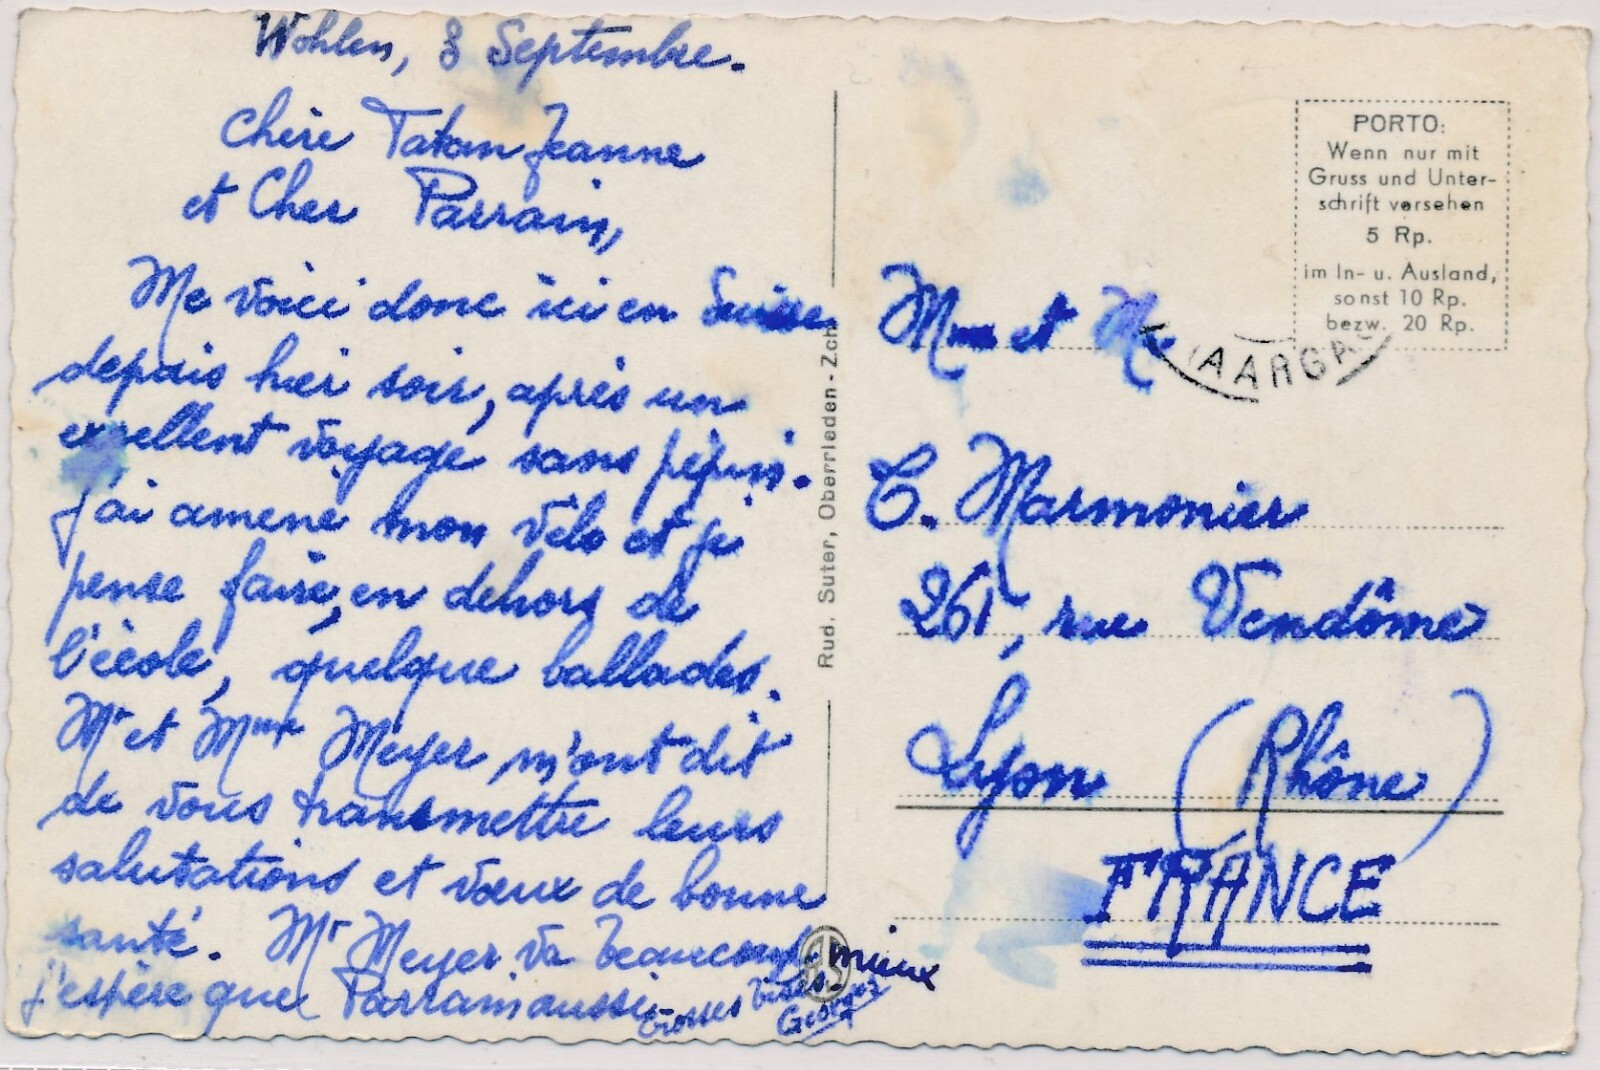 Wohlen, 8 Septembre.
Chère Tatan Jeanne
et Cher Parrain,
Me voici donc ici en Suisse
depuis hier soir, après un
excellent voyage sans pépin.
J'ai amené mon vélo et je
pense faire, en dehors de
l'école, quelque ballades.
Mr et Mme Meyer m'ont dit
de vous transmettre leurs
salutations et vœux de bonne
santé. Mr Meyer va beaucoup mieux
j'espère que Parrain aussi.
Grosses Bises
Georges
Rud. Suter, Oberrieden - Zch
RS
PORTO:
Wenn nur mit
Gruss und Unter-
schrift versehen
5 Rp.
im In- u. Ausland,
sonst 10 Rp.
bezw. 20 Rp.
(AARGAU)
Mme et M.
C. Marmonier
261, rue Vendôme
Lyon (Rhône)
FRANCE